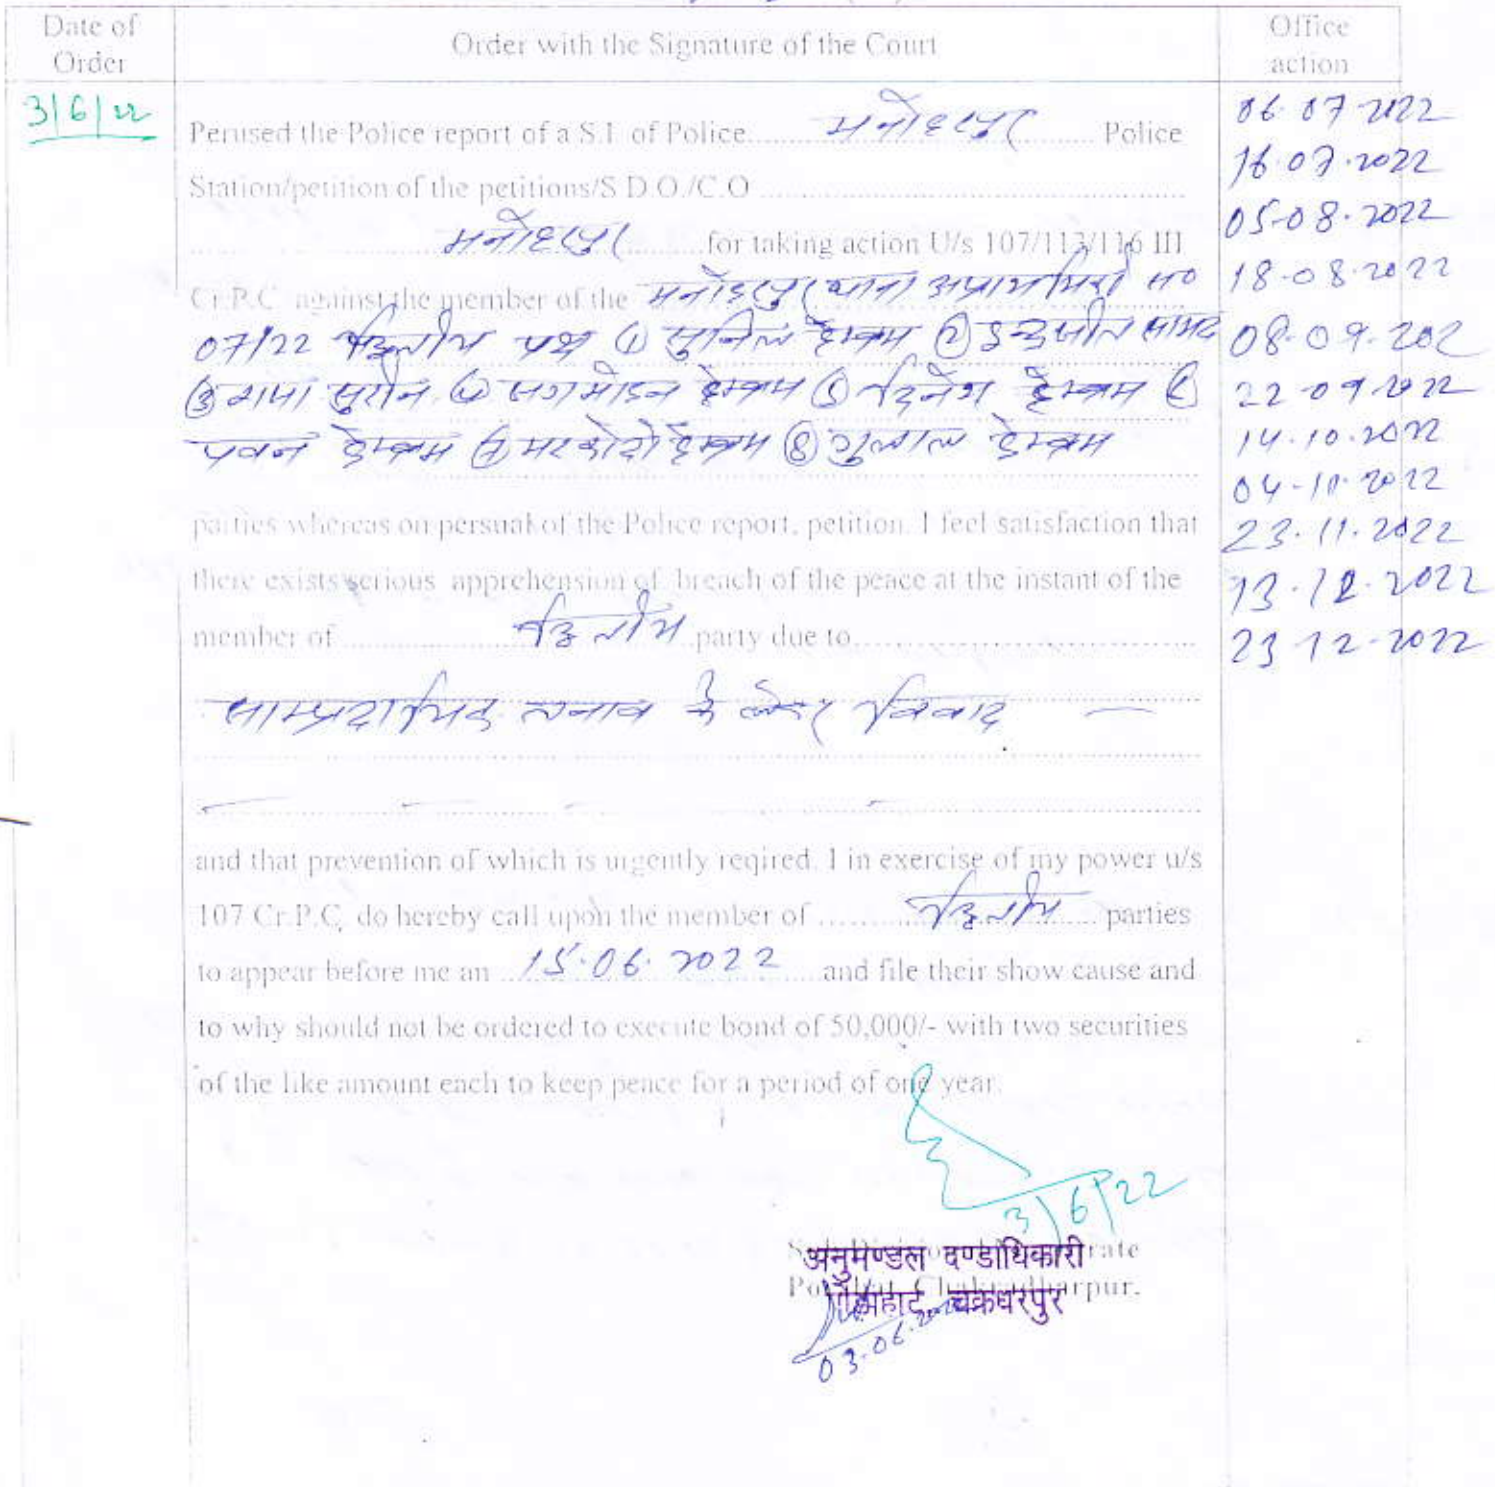 Date of
Order
Order with the Signature of the Court
Office
action
3/6/22
Perused the Police report of a S.I. of Police.......... मनोहरपुर .......... Police
Station/petition of the petitions/S.D.O./C.O ..........
.......... मनोहरपुर ..........for taking action U/s 107/113/116 III
Cr.P.C. against the member of the मनोहरपुर थाना अप्राथमिकी सं०
07/22 द्वितीय पक्ष ① सुनिल हेम्ब्रम ② इन्द्रजीत सामद
③ सुरीन ④ हेम्ब्रम ⑤ दिनेश हेम्ब्रम
पवन हेम्ब्रम ⑦ हेम्ब्रम ⑧ हेम्ब्रम
parties whereas on persual of the Police report, petition. I feel satisfaction that
there exists serious apprehension of breach of the peace at the instant of the
member of .......... द्वितीय party due to..........
साम्प्रदायिक तनाव को लेकर विवाद —
and that prevention of which is urgently reqired. I in exercise of my power u/s
107 Cr.P.C, do hereby call upon the member of .......... द्वितीय .......... parties
to appear before me an .. 15.06.2022 ......and file their show cause and
to why should not be ordered to execute bond of 50,000/- with two securities
of the like amount each to keep peace for a period of one year.
3/6/22
अनुमण्डल दण्डाधिकारी
पोड़ाहाट, चक्रधरपुर
Chakradharpur.
03.06.2022
06.07.2022
16.07.2022
05-08.2022
18-08-2022
08-09-202
22-09-2022
14.10.2022
23.11.2022
13.12.2022
23-12-2022